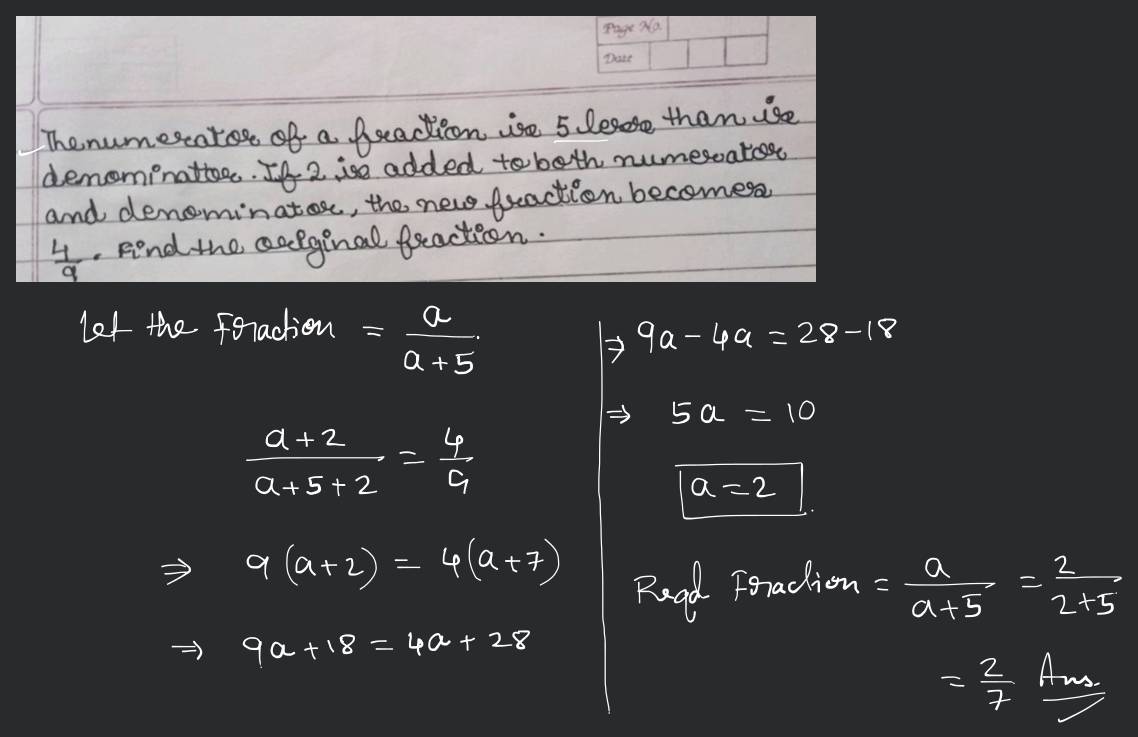 Page No.
Date
The numerator of a fraction is 5 less than its
denominattor. If 2 is added to both numerator
and denominator, the new fraction becomes
4/9. Find the original fraction.
Let the Fraction = a/(a+5)
(a+2)/(a+5+2) = 4/9
⇒ 9(a+2) = 4(a+7)
⇒ 9a+18 = 4a+28
⇒ 9a-4a = 28-18
⇒ 5a = 10
a=2
Reqd Fraction = a/(a+5) = 2/(2+5)
= 2/7 Ans.